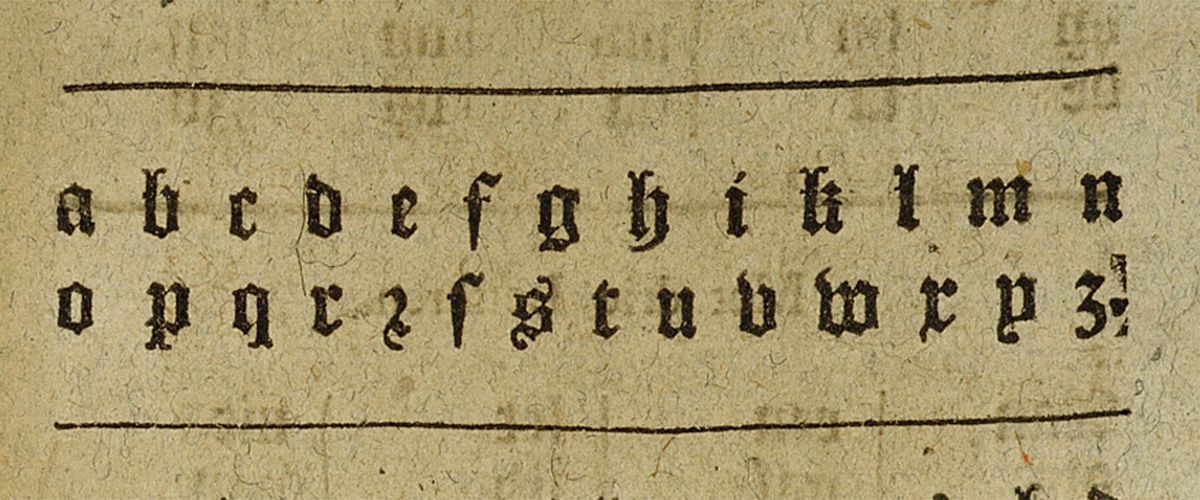 a b c d e f g h i k l m n
o p q r ꝛ ſ s t u v w x y z.